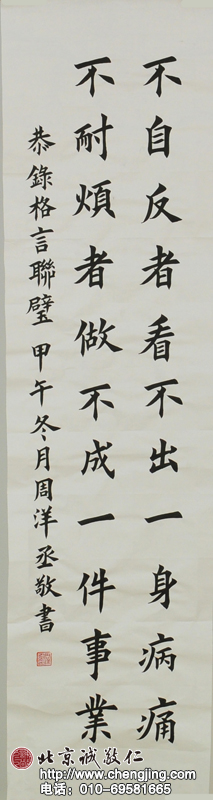 不自反者看不出一身病痛
不耐煩者做不成一件事業
恭錄格言聯璧甲午冬月周洋丞敬書
北京誠敬仁
www.chengjing.com
电话：010-69581665